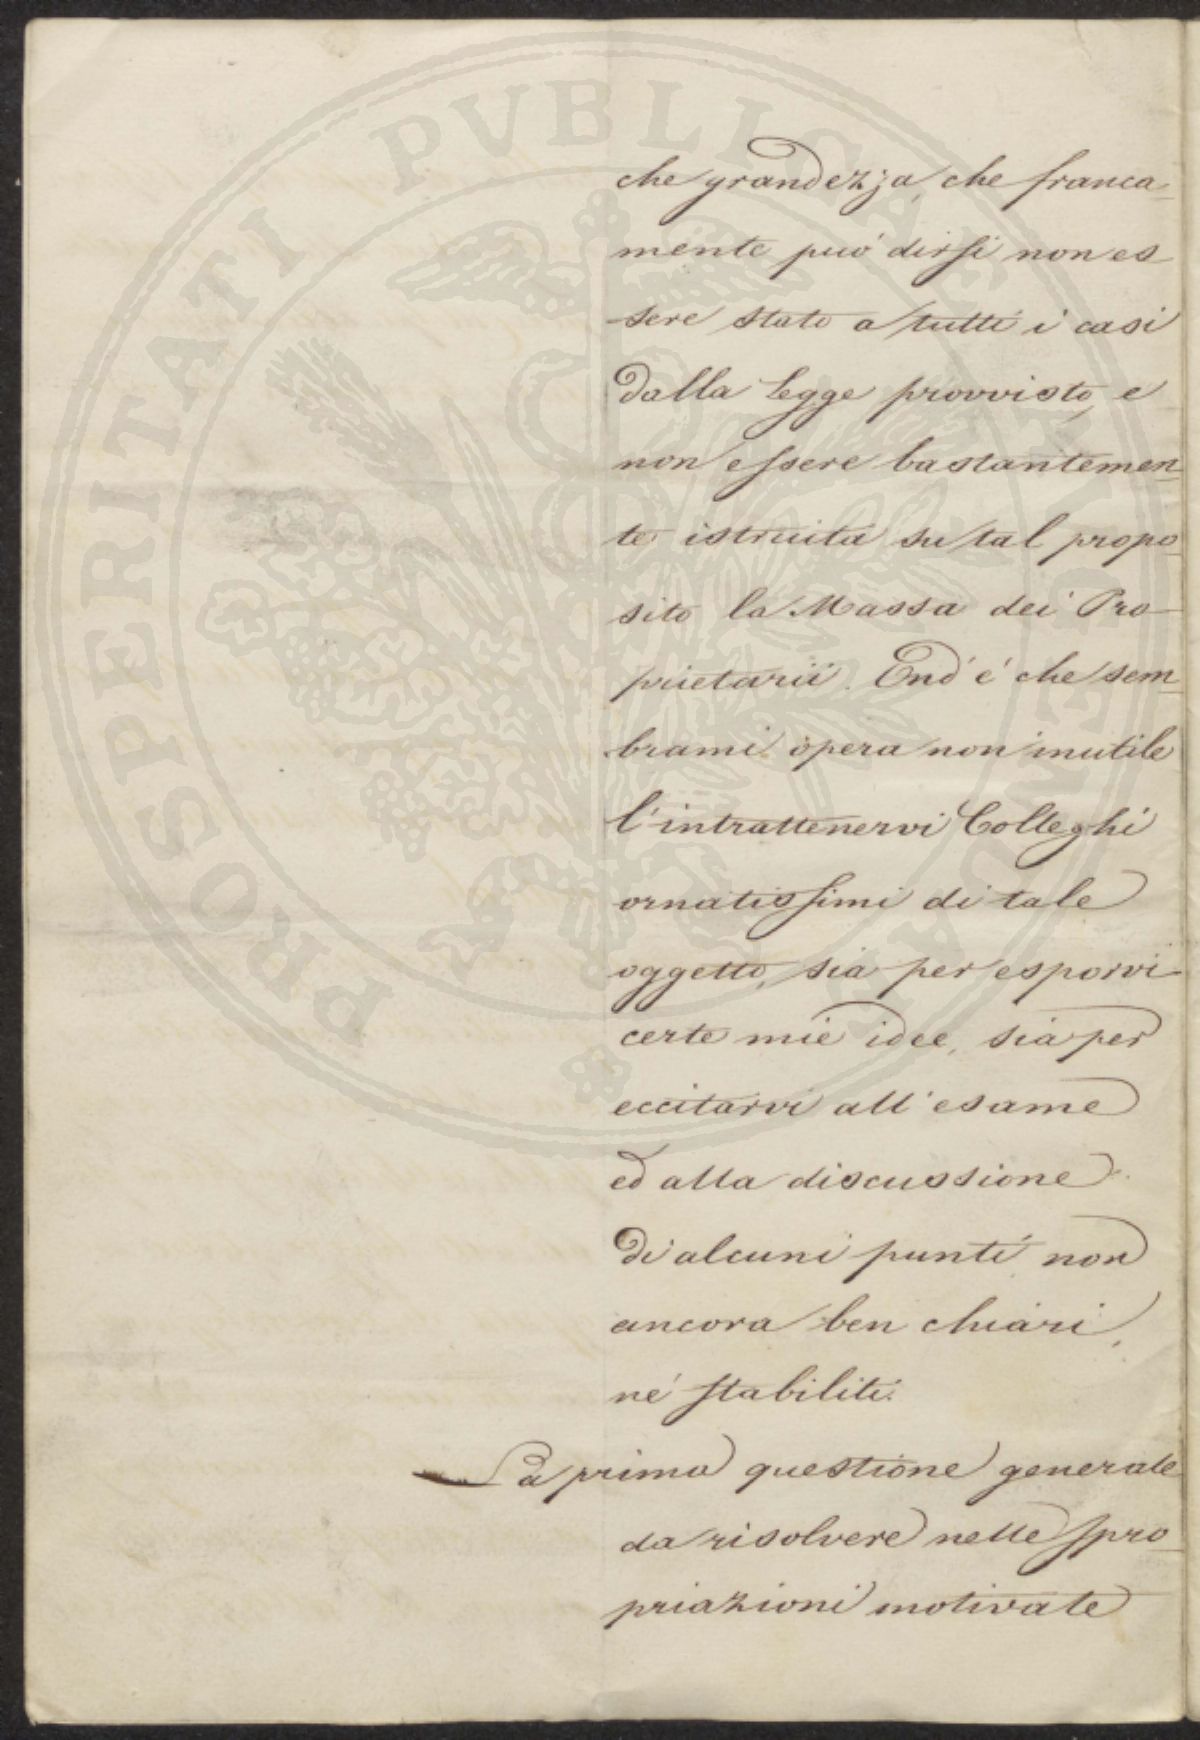 PROSPERITATI PVBLICAE AVGENDAE
che grandezza, che franca-
mente può dirsi non es-
sere stato a tutti i casi
dalla legge provvisto, e
non essere bastantemen-
te istruita su tal propo-
sito la Massa dei Pro-
prietarii. End'è che sem-
brami opera non inutile
l'intrattenervi Colleghi
ornatissimi di tale
oggetto, sia per esporvi
certe mie idee, sia per
eccitarvi all'esame
ed alla discussione
di alcuni punti non
ancora ben chiari,
nè stabiliti.
La prima questione generale
da risolvere nelle spro-
priazioni motivate